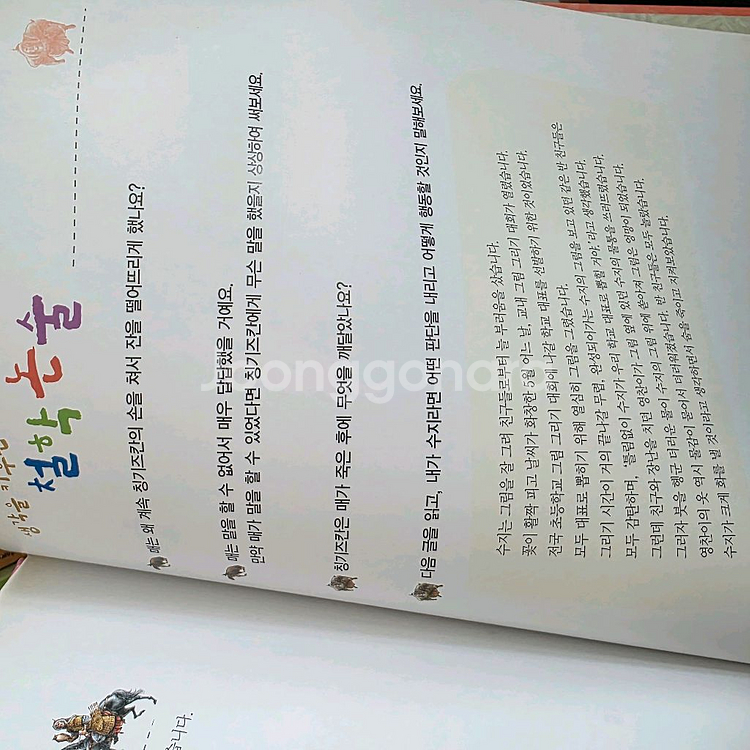 생각을 키우는
철학 논술
매는 왜 계속 칭기즈칸의 손을 쳐서 잔을 떨어뜨리게 했나요?
매는 말을 할 수 없어서 매우 답답했을 거예요.
만약 매가 말을 할 수 있었다면 칭기즈칸에게 무슨 말을 했을지 상상하여 써보세요.
칭기즈칸은 매가 죽은 후에 무엇을 깨달았나요?
다음 글을 읽고, 내가 수지라면 어떤 판단을 내리고 어떻게 행동할 것인지 말해보세요.
수지는 그림을 잘 그려 친구들로부터 늘 부러움을 샀습니다.
꽃이 활짝 피고 날씨가 화창한 5월 어느 날, 교내 그림 그리기 대회가 열렸습니다.
전국 초등학교 그림 그리기 대회에 나갈 학교 대표를 선발하기 위한 것이었습니다.
모두 대표로 뽑히기 위해 열심히 그림을 그렸습니다.
그리기 시간이 거의 끝나갈 무렵, 완성되어가는 수지의 그림을 보고 있던 같은 반 친구들은
모두 감탄하며, '틀림없이 수지가 우리 학교 대표로 뽑힐 거야.'라고 생각했습니다.
그런데 친구와 장난을 치던 영찬이가 그림 옆에 있던 수지의 물통을 쓰러뜨렸습니다.
그러자 붓을 헹군 더러운 물이 수지의 그림 위에 쏟아져 그림은 엉망이 되었습니다.
영찬이의 옷 역시 물감이 묻어서 더러워졌습니다. 반 친구들은 모두 놀랐습니다.
수지가 크게 화를 낼 것이라고 생각하면서 숨을 죽이고 지켜보았습니다.
습니다.
Joonggonara